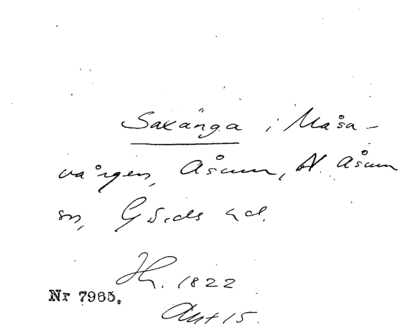 Saxänga i Måsa-
vången, Åsum, N. Åsum
sn, Gärds hd.
1822
Nr 7965.
Akt 15.